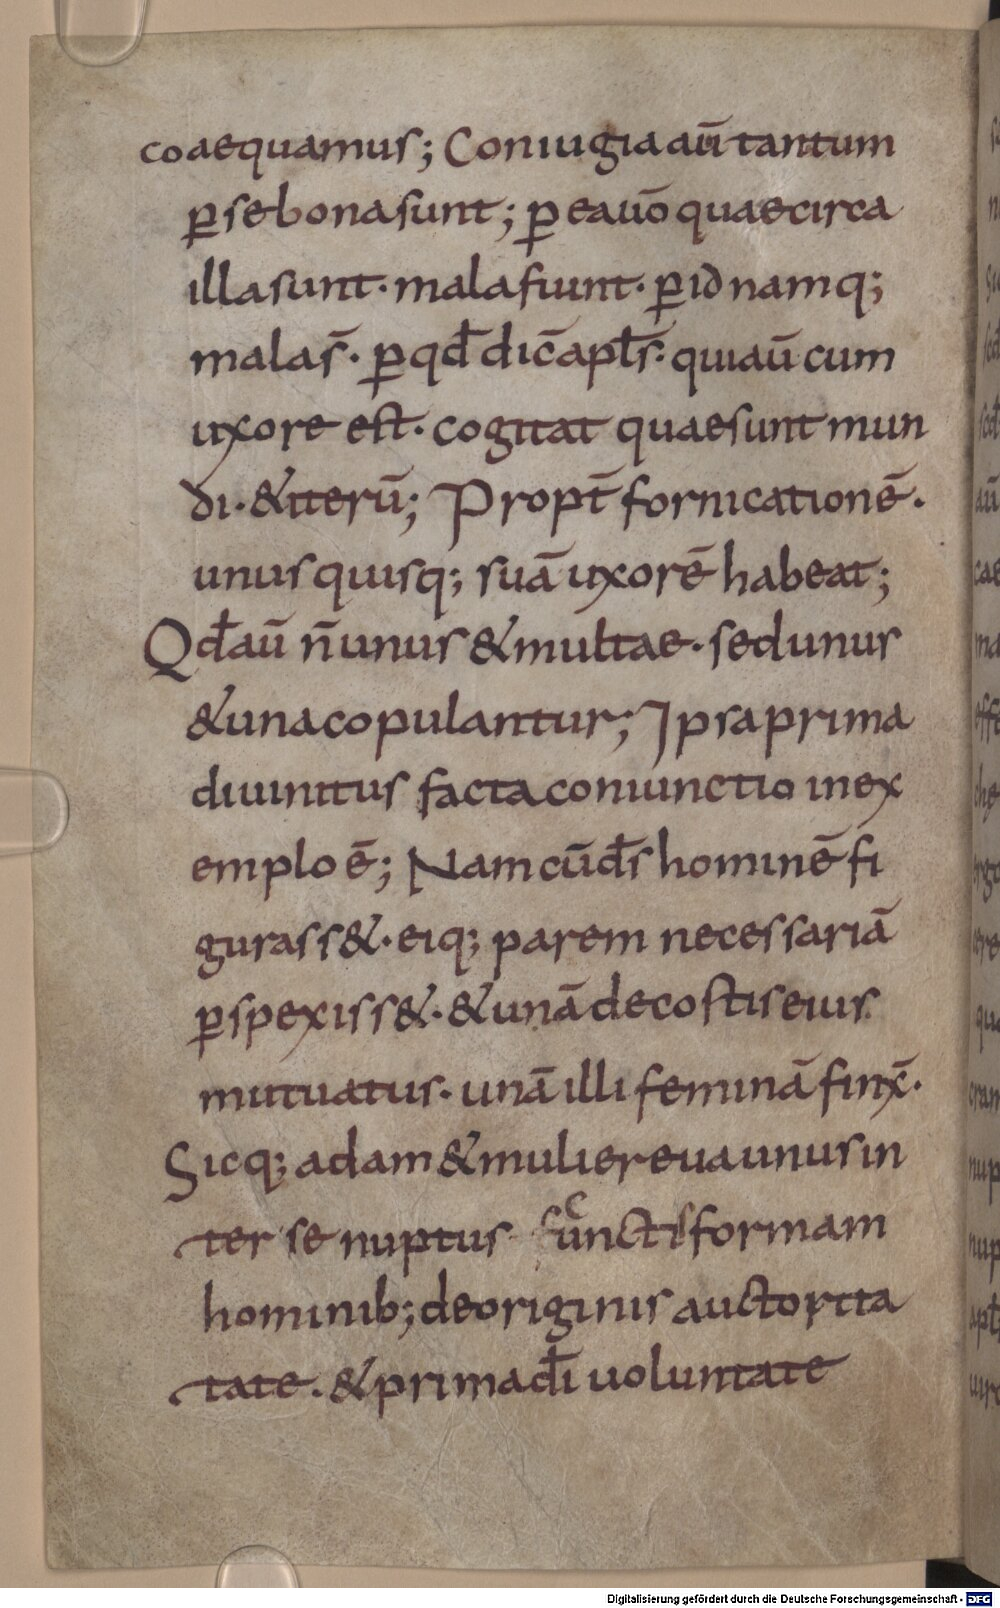 coaequamus; Coniugia aū tantum
ꝑ se bona sunt; ꝑ ea uō quae circa
illa sunt · mala fiunt · ꝑ id namq;
mala s̄ · ꝑ qđ dic̄ apłs · qui aū cum
uxore est · cogitat quae sunt mun
di · & iterū; Propt̄ fornicationē ·
unus quisq; suā uxorē habeat;
Qđ aū n̄ unus & multae · sed unus
& una copulantur; Ipsa prima
diuinitus facta coniunctio in ex
emplo ē; Nam cū d̄s hominē fi
gurass& · eiq; parem necessariā
ꝑspexiss& · & unā de costis eius
mutuatus · unā illi feminā finx̄ ·
Sicq; adam & mulier eua unus in
ter se nuptus functi formam
hominib; de originis auctorita
tate · & prima dī uoluntate
Digitalisierung gefördert durch die Deutsche Forschungsgemeinschaft - DFG